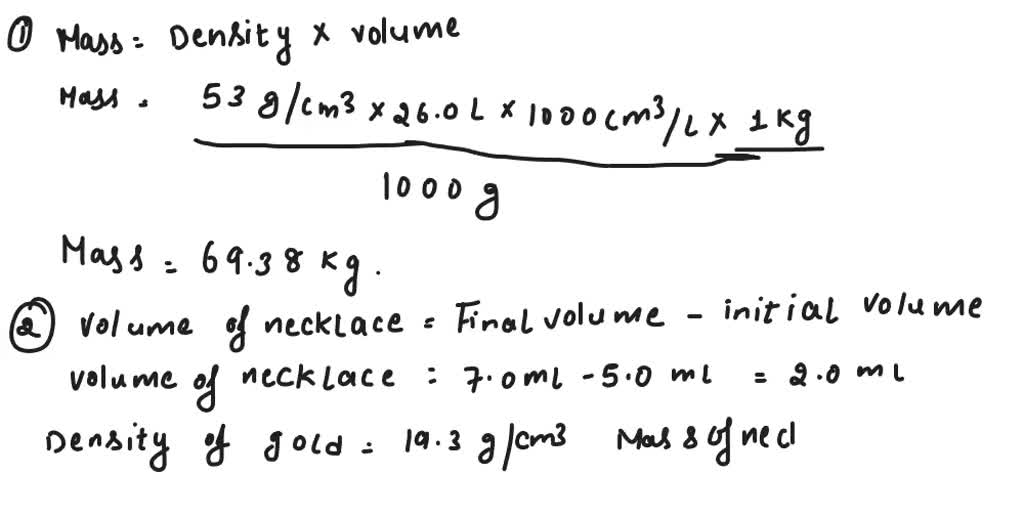 ① Mass = Density × volume
Mass = 53 g/cm3 × 26.0 L × 1000 cm³/L × 1 kg
1000 g
Mass = 69.38 kg.
② Volume of necklace = Final volume - initial volume
volume of necklace = 7.0 ml - 5.0 ml = 2.0 ml
Density of gold = 19.3 g/cm3 Mass of necl